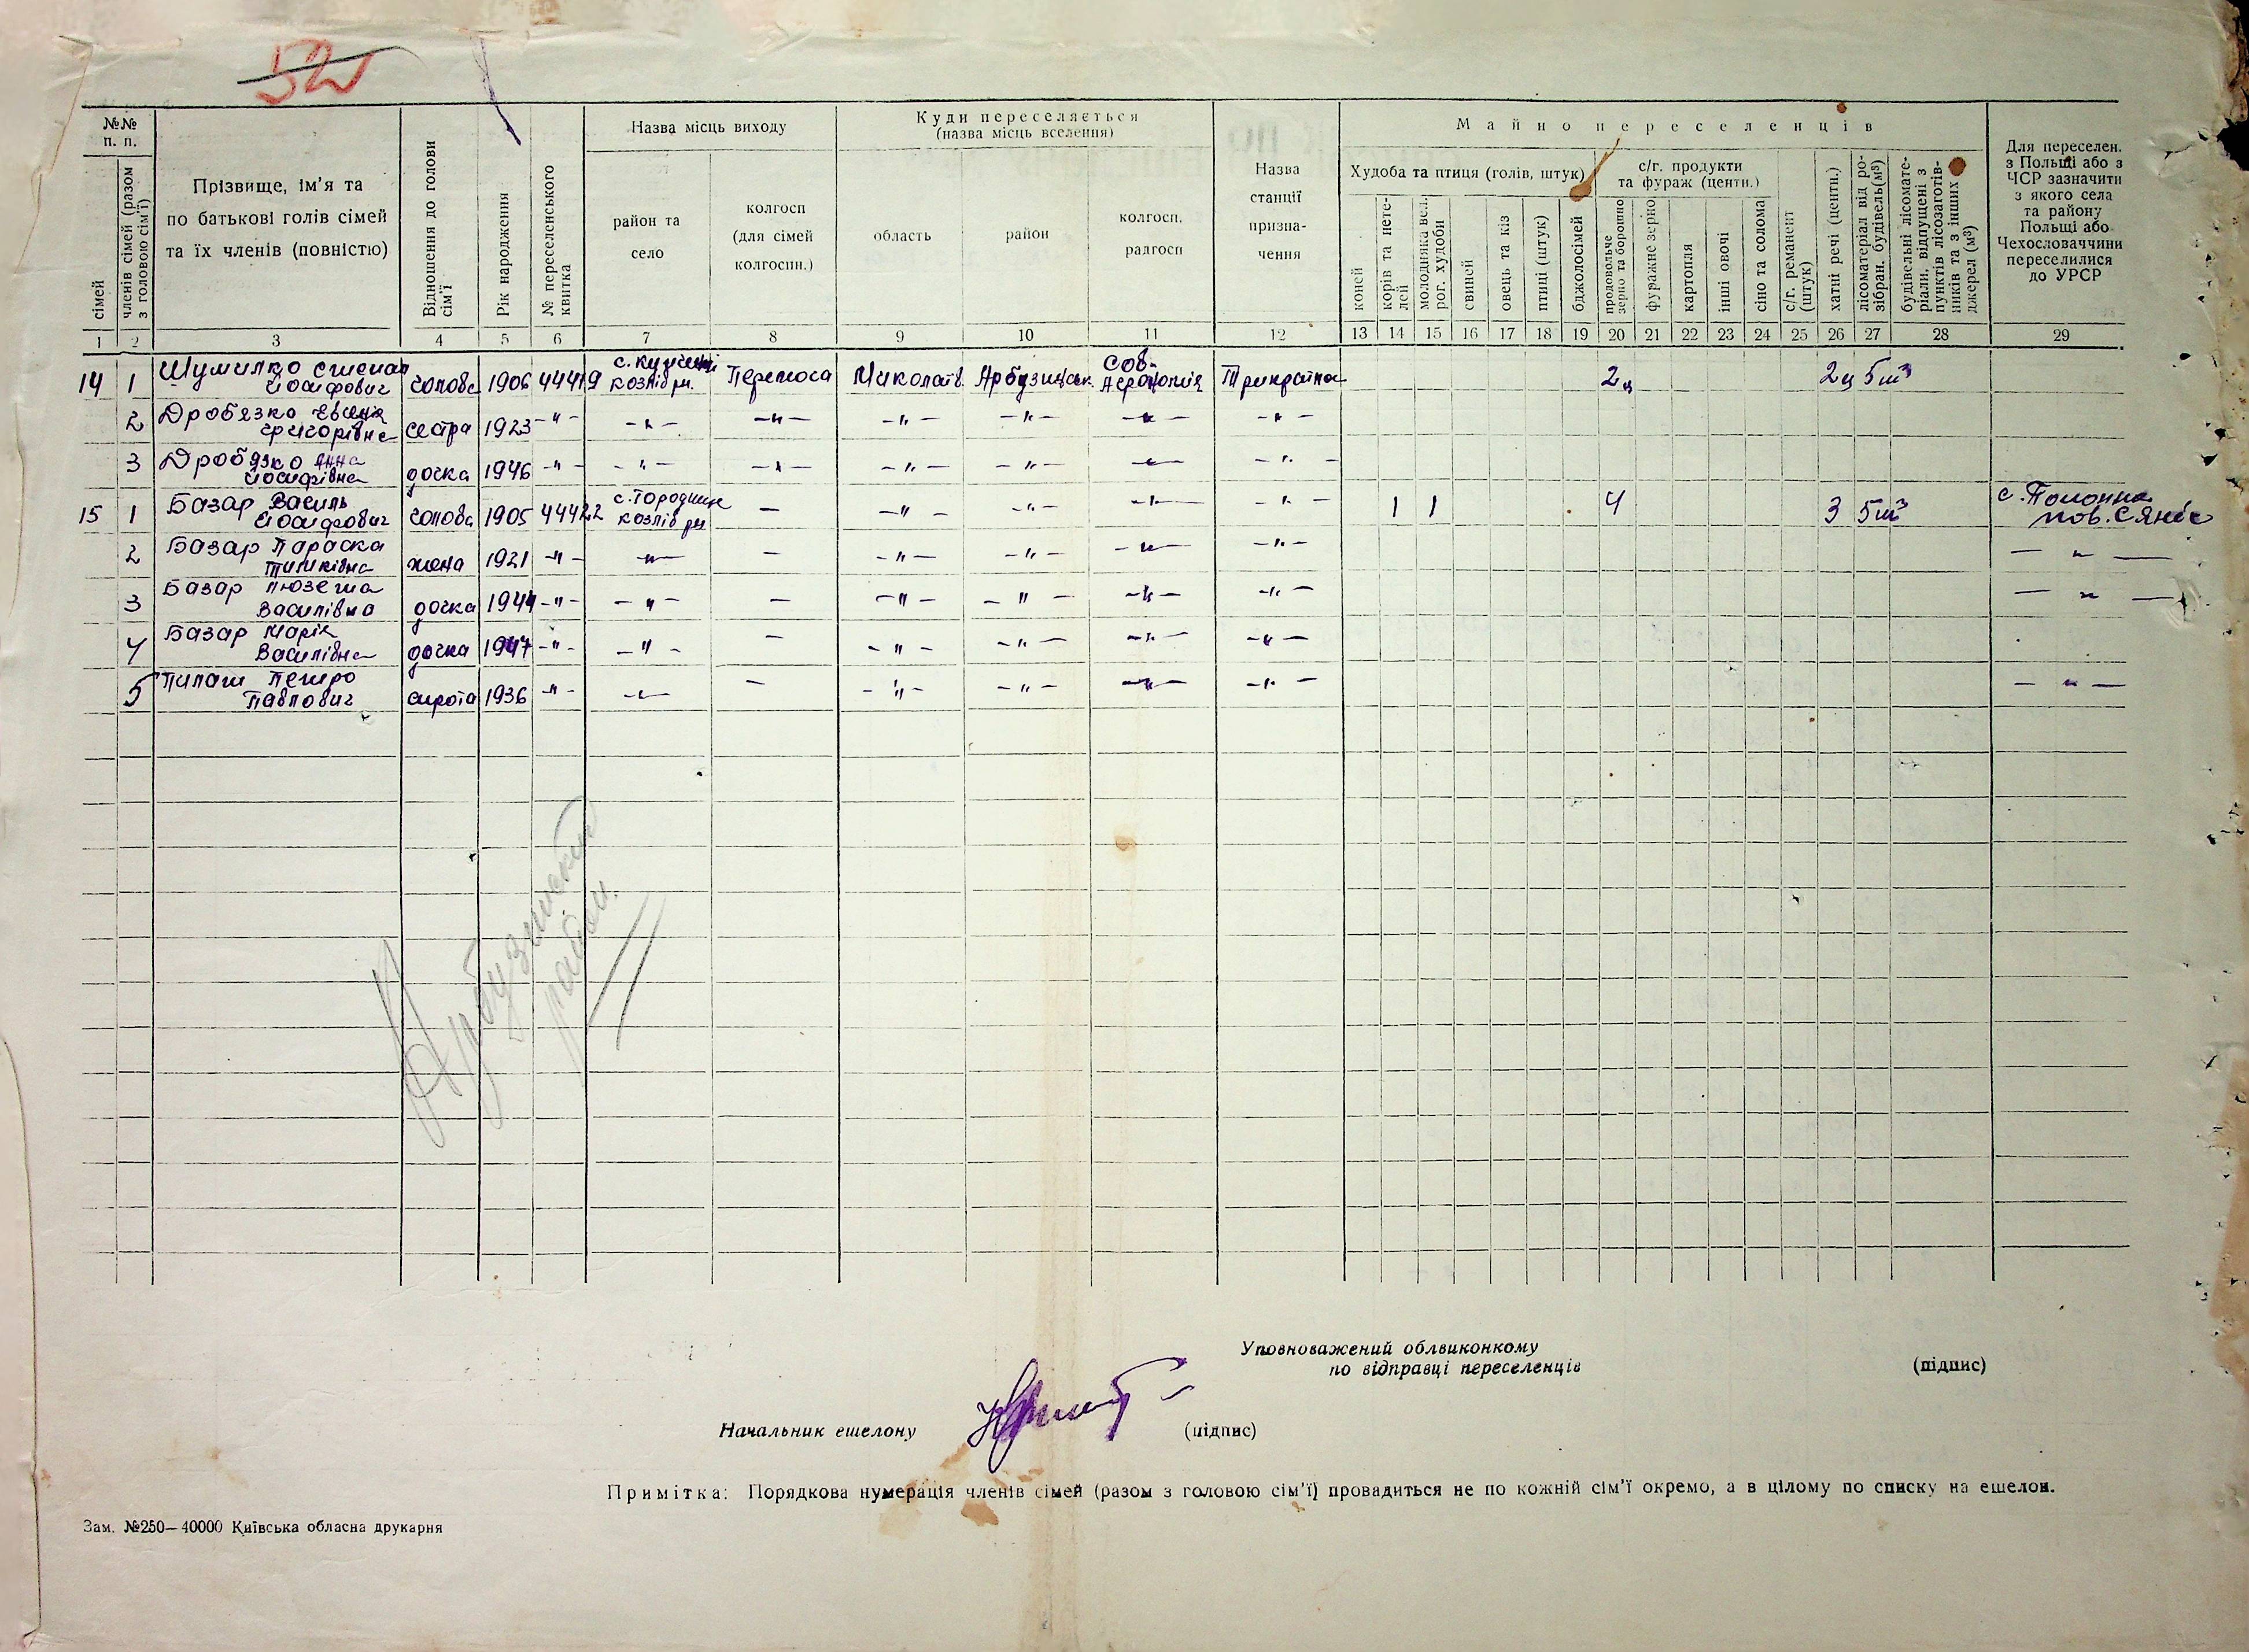 52
№№ п. п.
сімей
членів сімей (разом з головою сім'ї)
Прізвище, ім'я та
по батькові голів сімей
та їх членів (повністю)
Відношення до голови сім'ї
Рік народження
№ переселенського квитка
Назва місць виходу
район та
село
колгосп
(для сімей
колгоспн.)
Куди переселяється
(назва місць вселення)
область
район
колгосп,
радгосп
Назва
станції
призна-
чення
Майно переселенців
Худоба та птиця (голів, штук)
коней
корів та нете-
лей
молодняка вел.
рог. худоби
свиней
овець та кіз
птиці (штук)
бджолосімей
с/г. продукти
та фураж (центн.)
продовольче
зерно та борошно
фуражне зерно
картопля
інші овочі
сіно та солома
с/г. реманент
(штук)
хатні речі (центн.)
лісоматеріал від ро-
зібран. будівель (м³)
будівельні лісомате-
ріали, відпущені з
пунктів лісозаготів-
ників та з інших
джерел (м³)
Для переселен.
з Польщі або з
ЧСР зазначити
з якого села
та району
Польщі або
Чехословаччини
переселилися
до УРСР
1 2 3 4 5 6 7 8 9 10 11 12 13 14 15 16 17 18 19 20 21 22 23 24 25 26 27 28 29
14 1 Шумилко Степан Йосифович голова 1906 44419 Козлів рн. Перемога Миколаїв. Арбузинськ. Сов. 2ц 2ц 5м³
2 Дробязко Євгенія Григорівна сестра 1923 -"- -"- -"- -"- -"- -"- -"-
3 Дробязко Анна Йосифівна дочка 1946 -"- -"- -"- -"- -"- -"- -"-
15 1 Базар Василь Йосифович голова 1905 44422 с. Городище Козлів рн — -"- -"- -"- -"- 1 1 4 3 5м³
2 Базар Параска жена 1921 -"- -"- — -"- -"- -"- -"- -"-
3 Базар Василівна дочка 1944 -"- -"- — -"- -"- -"- -"- -"-
4 Базар Марія Василівна дочка 1947 -"- -"- — -"- -"- -"- -"-
5 Пилат Петро Павлович сирота 1936 -"- -"- — -"- -"- -"- -"- -"-
Арбузинский
район.
Уповноважений облвиконкому
по відправці переселенців
(підпис)
Начальник ешелону
(підпис)
Примітка: Порядкова нумерація членів сімей (разом з головою сім'ї) провадиться не по кожній сім'ї окремо, а в цілому по списку на ешелон.
Зам. №250—40000 Київська обласна друкарня